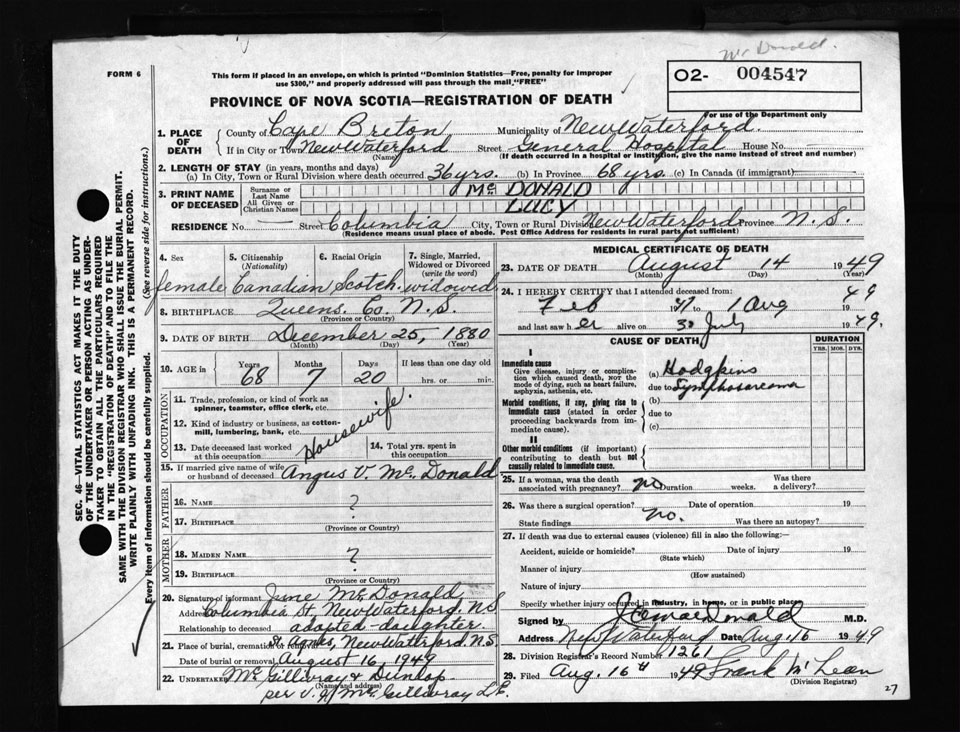 McDonald.
FORM 6
This form if placed in an envelope, on which is printed "Dominion Statistics—Free, penalty for improper
use $300," and properly addressed will pass through the mail, "FREE"
O2- 004547
For use of the Department only
PROVINCE OF NOVA SCOTIA—REGISTRATION OF DEATH
1. PLACE OF DEATH
County of Cape Breton Municipality of New Waterford.
If in City or Town New Waterford Street General Hospital House No. —
(Name) (If death occurred in a hospital or institution, give the name instead of street and number)
2. LENGTH OF STAY (in years, months and days)
(a) In City, Town or Rural Division where death occurred 36 yrs. (b) In Province 68 yrs. (c) In Canada (if immigrant)
3. PRINT NAME OF DECEASED
Surname or Last Name Mc DONALD
All Given or Christian Names LUCY
RESIDENCE No. — Street Columbia City, Town or Rural Division New Waterford Province N.S.
(Residence means usual place of abode. Post Office Address for residents in rural parts not sufficient)
4. Sex 5. Citizenship 6. Racial Origin 7. Single, Married,
(Nationality) Widowed or Divorced
(write the word)
female Canadian Scotch. widowed
8. BIRTHPLACE Queens. Co. N.S.
(Province or Country)
9. DATE OF BIRTH December 25, 1880
(Month) (Day) (Year)
10. AGE in Years Months Days If less than one day old
68 7 20 hrs. or min.
OCCUPATION
11. Trade, profession, or kind of work as
spinner, teamster, office clerk, etc.
12. Kind of industry or business, as cotton-
mill, lumbering, bank, etc.
Housewife.
13. Date deceased last worked at this occupation
14. Total yrs. spent in this occupation
15. If married give name of wife
or husband of deceased Angus V. Mc. Donald
FATHER
16. NAME ?
17. BIRTHPLACE
(Province or Country)
MOTHER
18. MAIDEN NAME ?
19. BIRTHPLACE
(Province or Country)
20. Signature of informant June McDonald
Address Columbia St. New Waterford. N.S
Relationship to deceased adopted-daughter.
21. Place of burial, cremation or removal St. Agnes, New Waterford. N.S.
Date of burial or removal August 16, 1949
22. UNDERTAKER Mc Gillivray & Dunlop
(Name and address)
per Mc. Gillivray
MEDICAL CERTIFICATE OF DEATH
23. DATE OF DEATH August 14 1949
(Month) (Day) (Year)
24. I HEREBY CERTIFY that I attended deceased from:
Feb 47 1 Aug 49
and last saw her alive on 30 July 1949.
CAUSE OF DEATH DURATION
YRS. MOS. DYS.
I
Immediate cause
Give disease, injury or complica-
tion which caused death, not the
mode of dying, such as heart failure,
asphyxia, asthenia, etc.
(a) Hodgkins
due to Lymphosarcoma
Morbid conditions, if any, giving rise to
immediate cause (stated in order
proceeding backwards from im-
mediate cause).
(b)
due to
(c)
II
Other morbid conditions (if important)
contributing to death but not
causally related to immediate cause.
25. If a woman, was the death Was there
associated with pregnancy? no Duration weeks. a delivery?
26. Was there a surgical operation? no. Date of operation 19
State findings Was there an autopsy?
27. If death was due to external causes (violence) fill in also the following:—
Accident, suicide or homicide? Date of injury 19
(State which)
Manner of injury
(How sustained)
Nature of injury
Specify whether injury occurred in industry, in home, or in public place
Signed by MacDonald M.D.
Address New Waterford Date Aug. 16 1949
28. Division Registrar's Record Number 1261
29. Filed Aug. 16th 1949 Frank McLean
(Division Registrar)
27
SEC. 46—VITAL STATISTICS ACT MAKES IT THE DUTY
OF THE UNDERTAKER OR PERSON ACTING AS UNDER-
TAKER TO OBTAIN ALL THE PARTICULARS REQUIRED
IN THE "REGISTRATION OF DEATH" AND TO FILE THE
SAME WITH THE DIVISION REGISTRAR WHO SHALL ISSUE THE BURIAL PERMIT.
WRITE PLAINLY WITH UNFADING INK. THIS IS A PERMANENT RECORD.
Every item of information should be carefully supplied. (See reverse side for instructions.)